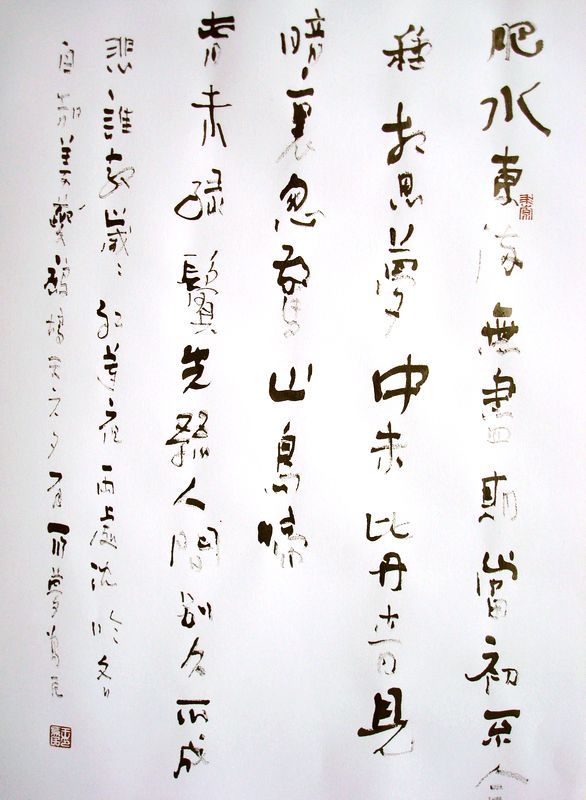 肥水東流無盡期當初不合
種相思夢中未比丹青見
暗裏忽驚山鳥啼
春未綠鬢先絲人間別久不成
悲誰教歲〻紅蓮夜兩處沈吟各
自知姜夔鷓鴣天元夕有所夢